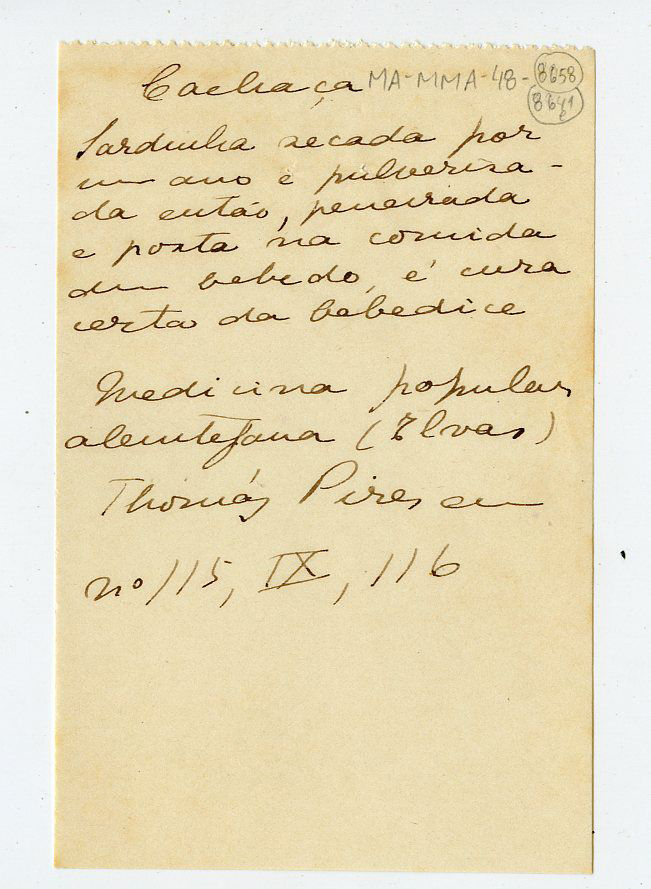 Cachaça MA-MMA-48-8658
8641
Sardinha secada por
um ano e pulverisa-
da então, peneirada
e posta na comida
dum bebedo, é cura
certa da bebedice
Medicina popular
alentejana (Elvas)
Thomás Pires em
nº 115, IX, 116